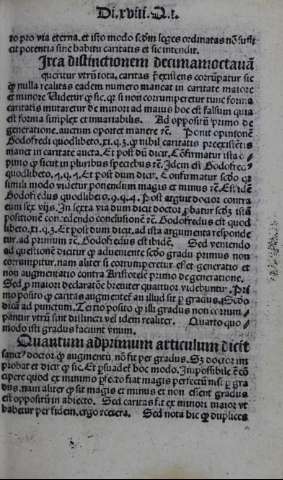 Di. xviii. Q. i.
to pro via eterna. et isto modo scḋm leges ordinatas nō suffi
cit potentia sine habitu caritatis et sic intendit.
Irca distinctionem decimamoctauā
queritur vtrū tota caritas p̄existens corrūpatur sic
ꝙ nulla realitas eadem numero maneat in caritate maiore
et minore Uidetur ꝙ sic. qꝛ si non corrumperetur tunc forma
caritatis mutaretur de minori ad maius hoc est falsum quia
est forma simplex et inuariabilis. Ad oppositū primo de
generatione. auctum oportet manere ꝛc. Ponit opinionē
Godofredi quodlibeto. xi. q. 3. ꝙ nihil caritatis preexistētis
manet in caritate aucta. Et post dū dicit. Cōfirmatur ista
quodlibeto. 4. q. 4. Et post dum dicit. Cōfirmatur scḋo
simili modo videtur ponendum magis et minus ꝛc.
Godofredus quodlibeto. 9. q. 4. Post arguit doctor contra
eum sex vijs. In sexta via dum dicit doctor
positionē
et post dum dicit. ad ista argumenta respōde
tur. ad primum ꝛc. Godofredus est ibidē. Sed veniendo
ad questionē dicitur ꝙ adueniente scḋo gradu primus non
corrumpitur. nam aliter si corrumperetur esset generatio et
non augmentatio contra Aristotelē primo de generatione.
Sed ꝓ maiori declaratiōe breuiter quattuor videbuntur. Pri
mo posito ꝙ caritas augmentet̄ an illud sit ꝑ gradus. Scḋo
dicā ad punctum. Tertio posito ꝙ illi gradus non corrum
pantur vtrū sint distincti vel idem realiter. Quarto quo
modo isti gradus faciunt vnum.
Quantum ad primum articulum dicit
sanct' doctor ꝙ augmentū nō fit per gradus. Sꝫ doctor im
probat et dicit ꝙ sic. Et ꝑsuadet hoc modo. Impossibile ē cō
cipere quod ex minimo
dus. nam aliter ꝙ sit magis et minus et non essent gradus
est oppositū in abiecto. Sed caritas fit ex minori maior vt
habetur per fidem. ergo recera. Sed nota hic ꝙ duplices